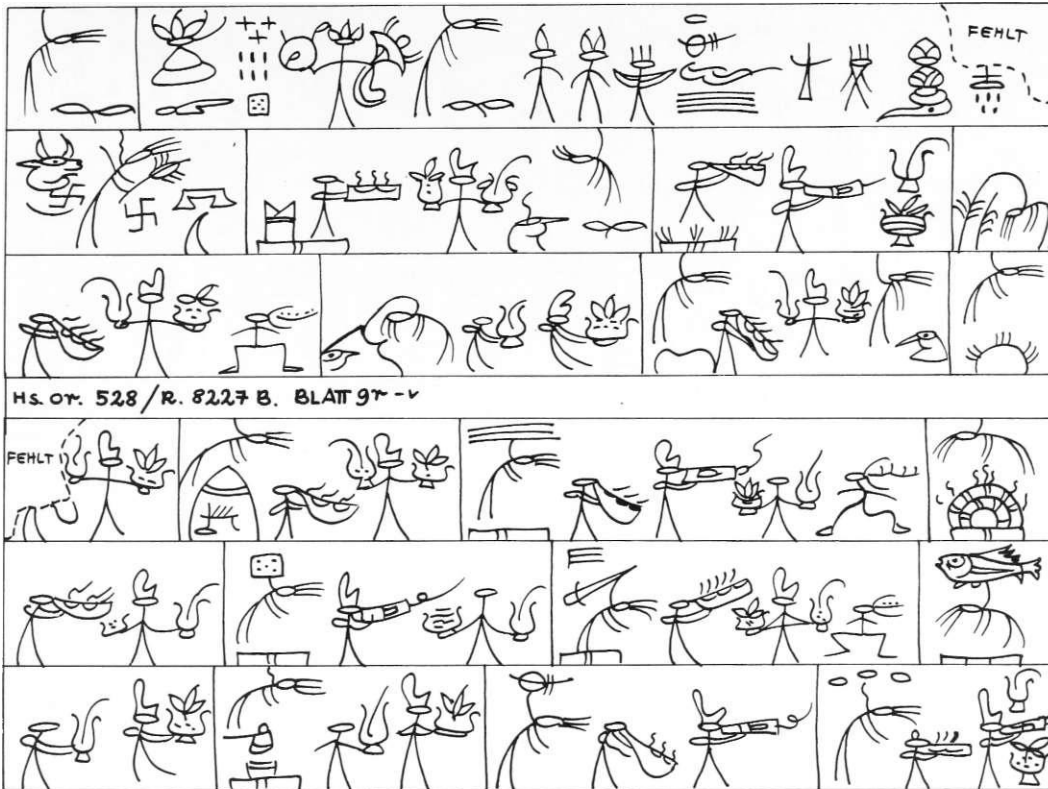 FEHLT
HS. Or. 528/R. 8227 B. BLATT 9r-v
FEHLT